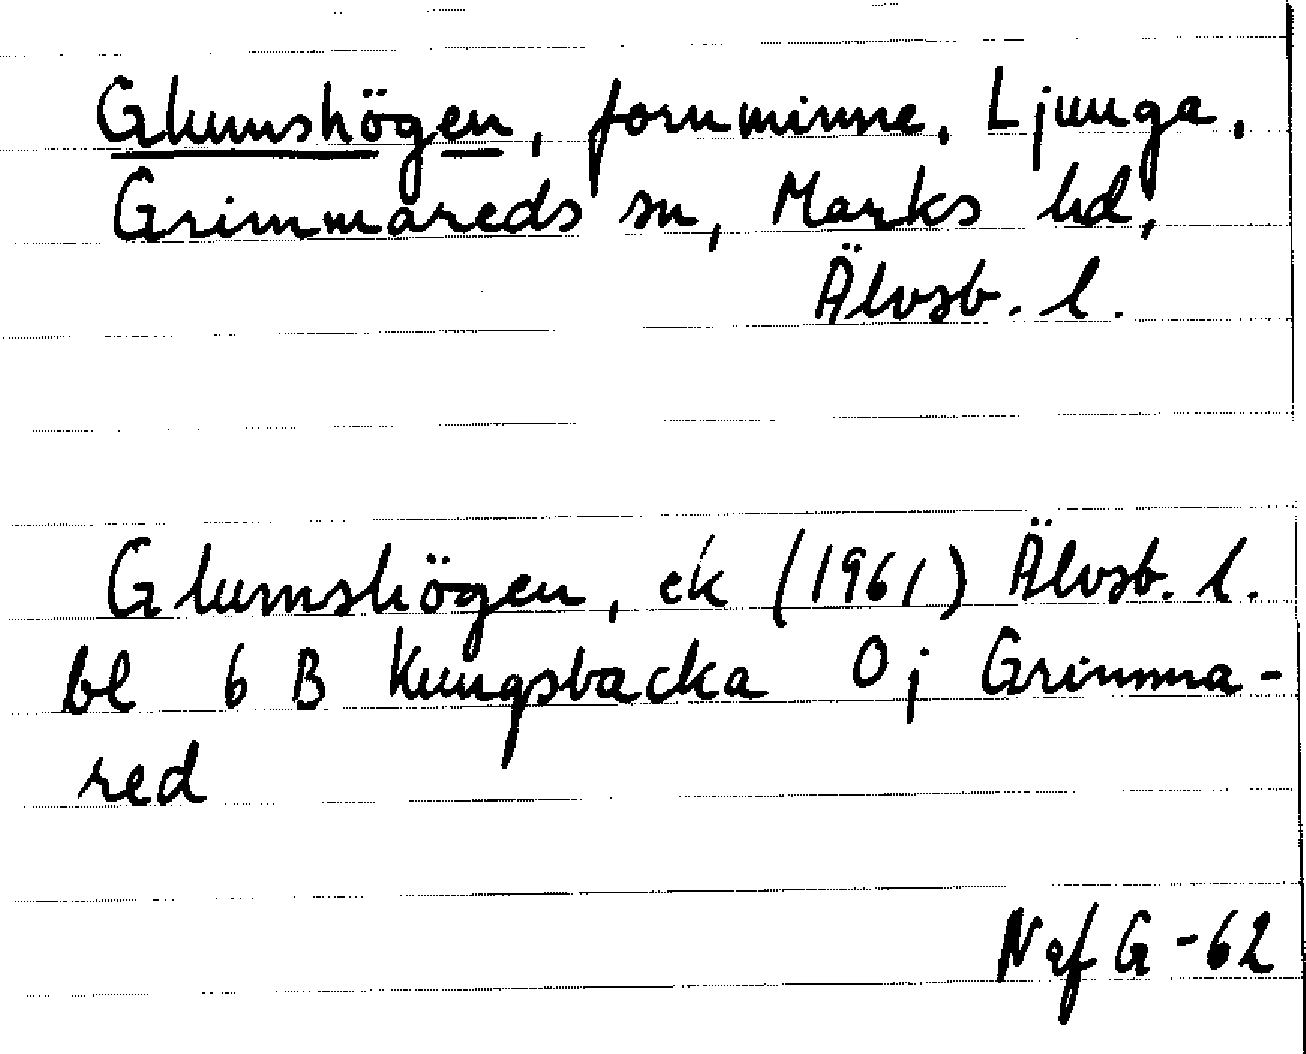 Glumshögen, fornminne, Ljunga,
Grimmareds sn, Marks hd,
Älvsb. l.
Glumshögen, ek (1961) Älvsb. l.
bl 6 B Kungsbacka 0j Grimma-
red
NafG -62